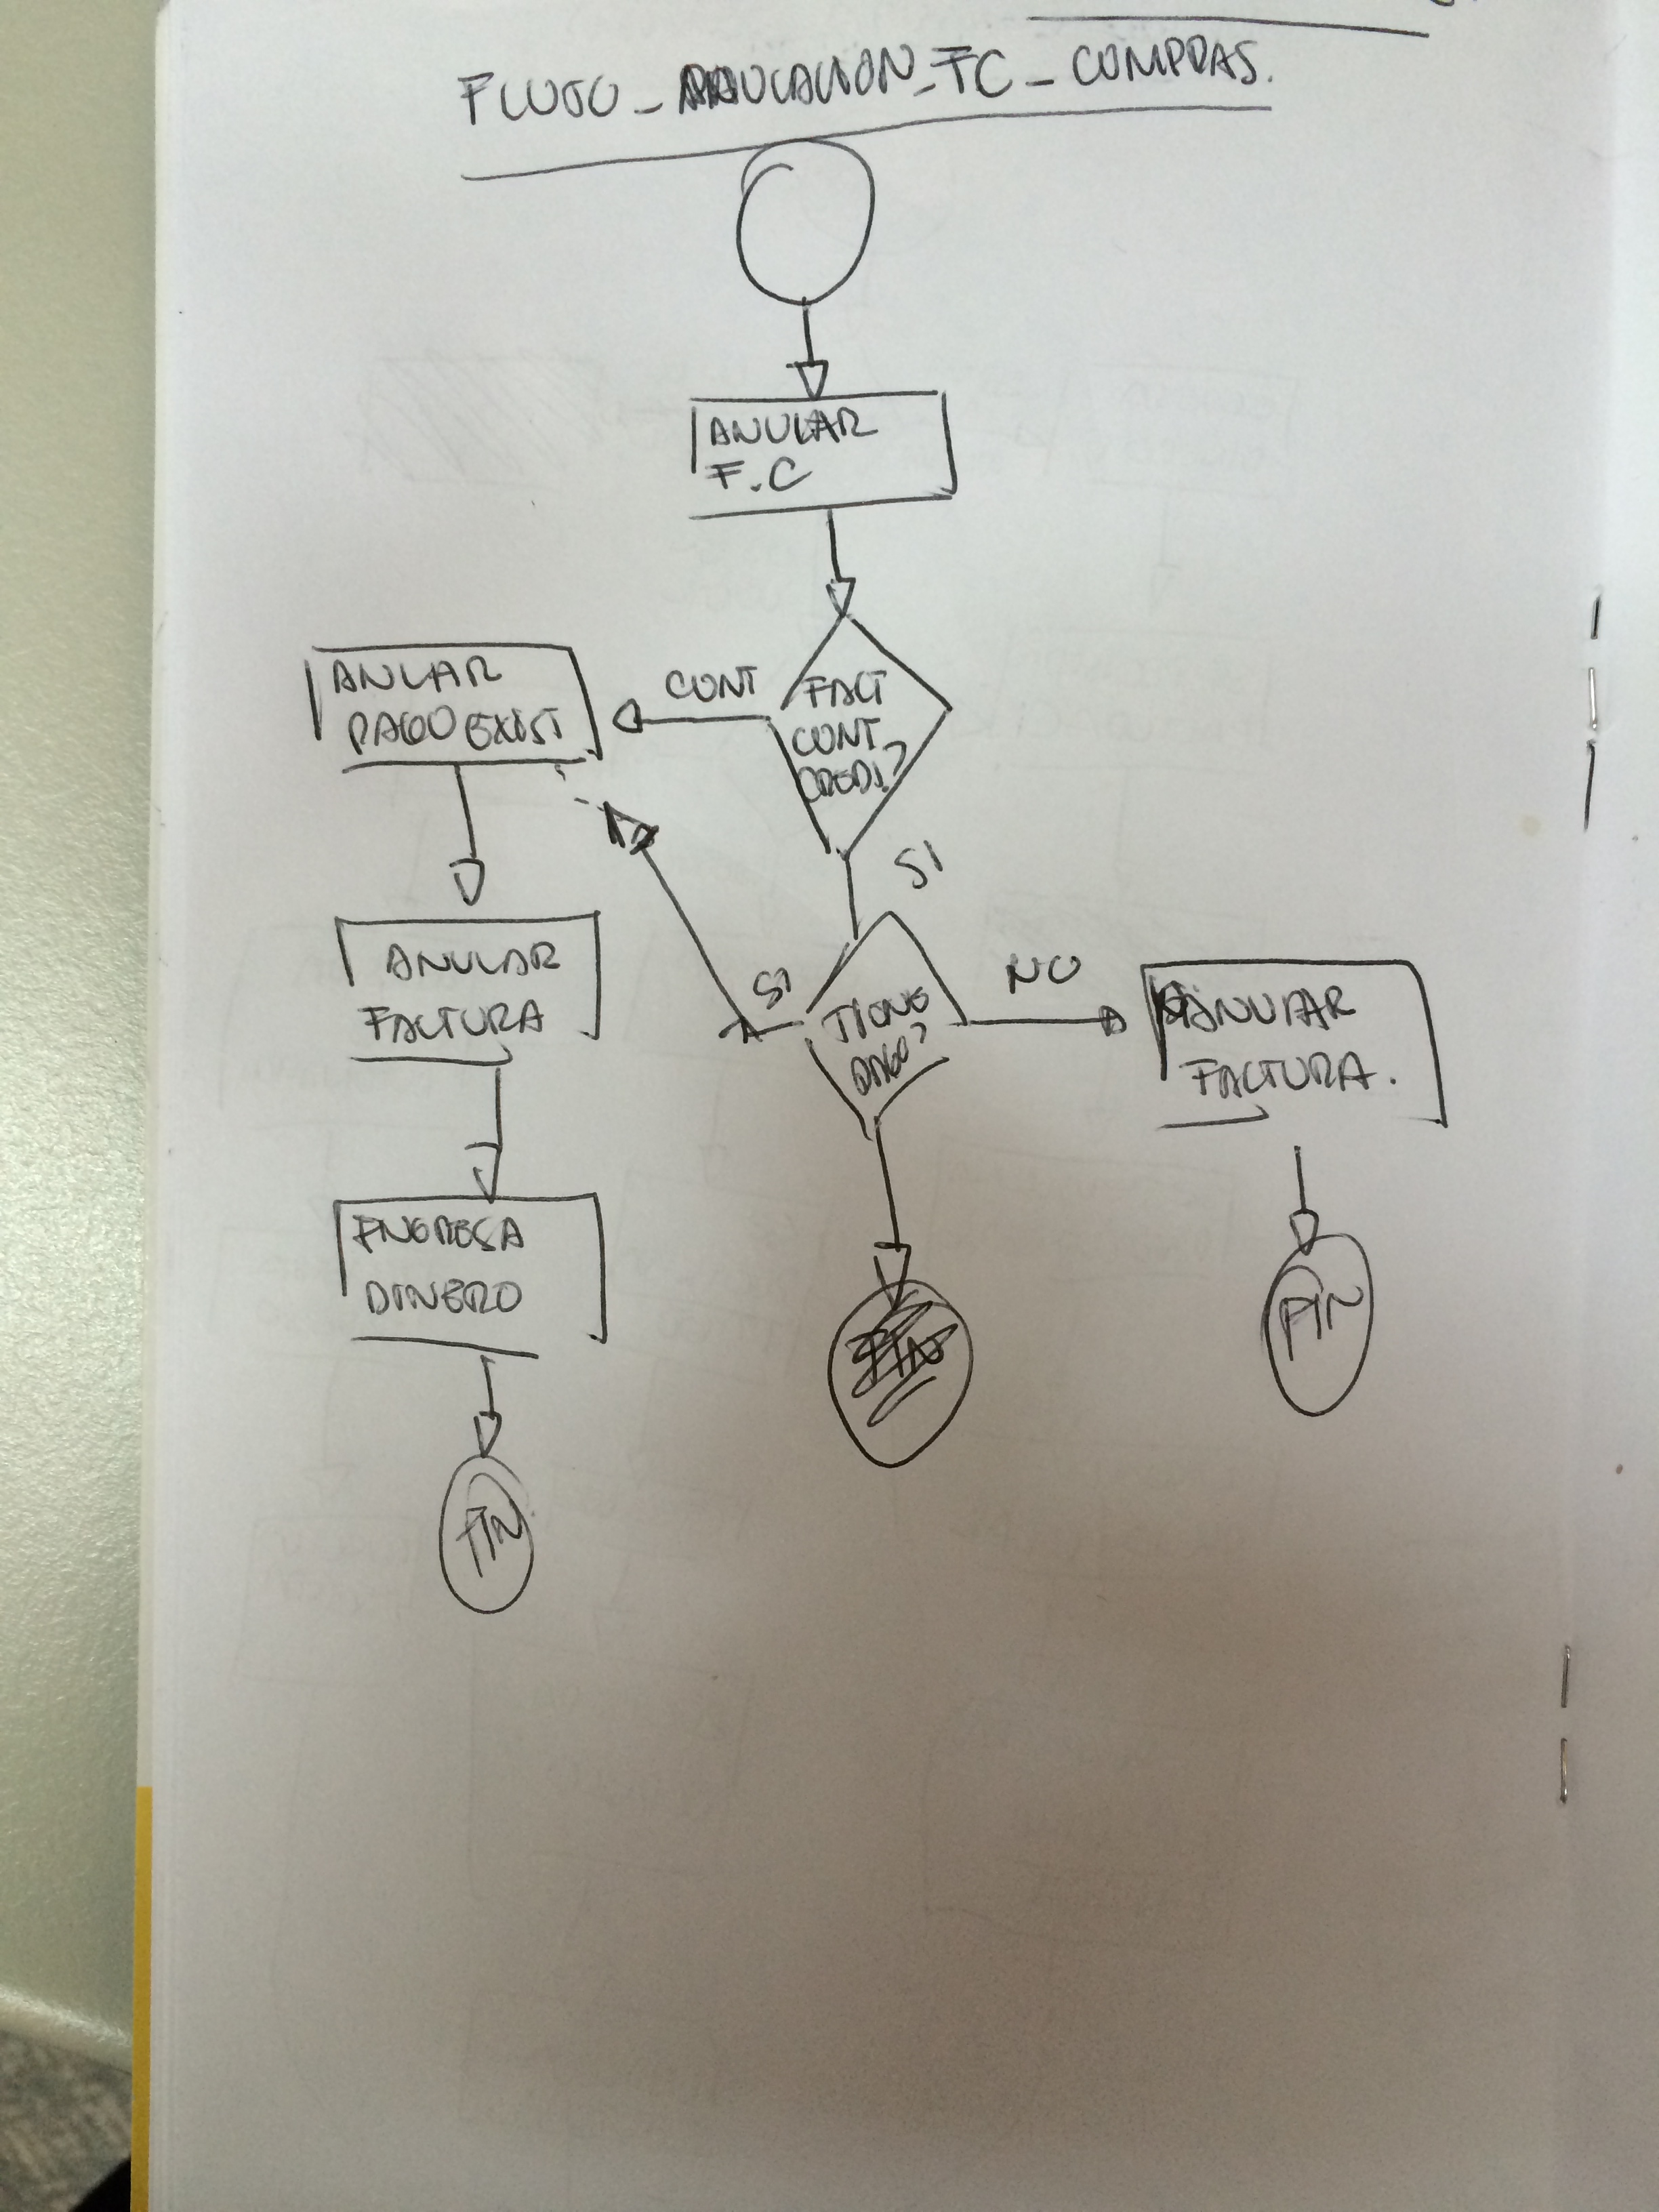 FLUJO_ANULACION_FC_COMPRAS.
ANULAR
F.C
FACT
CONT
CREDI?
CONT
ANULAR
PAGO EXIST
SI
TIENE
PAGO?
SI
NO
ANULAR
FACTURA
ANULAR
FACTURA.
INGRESA
DINERO
FIN
FIN
FIN